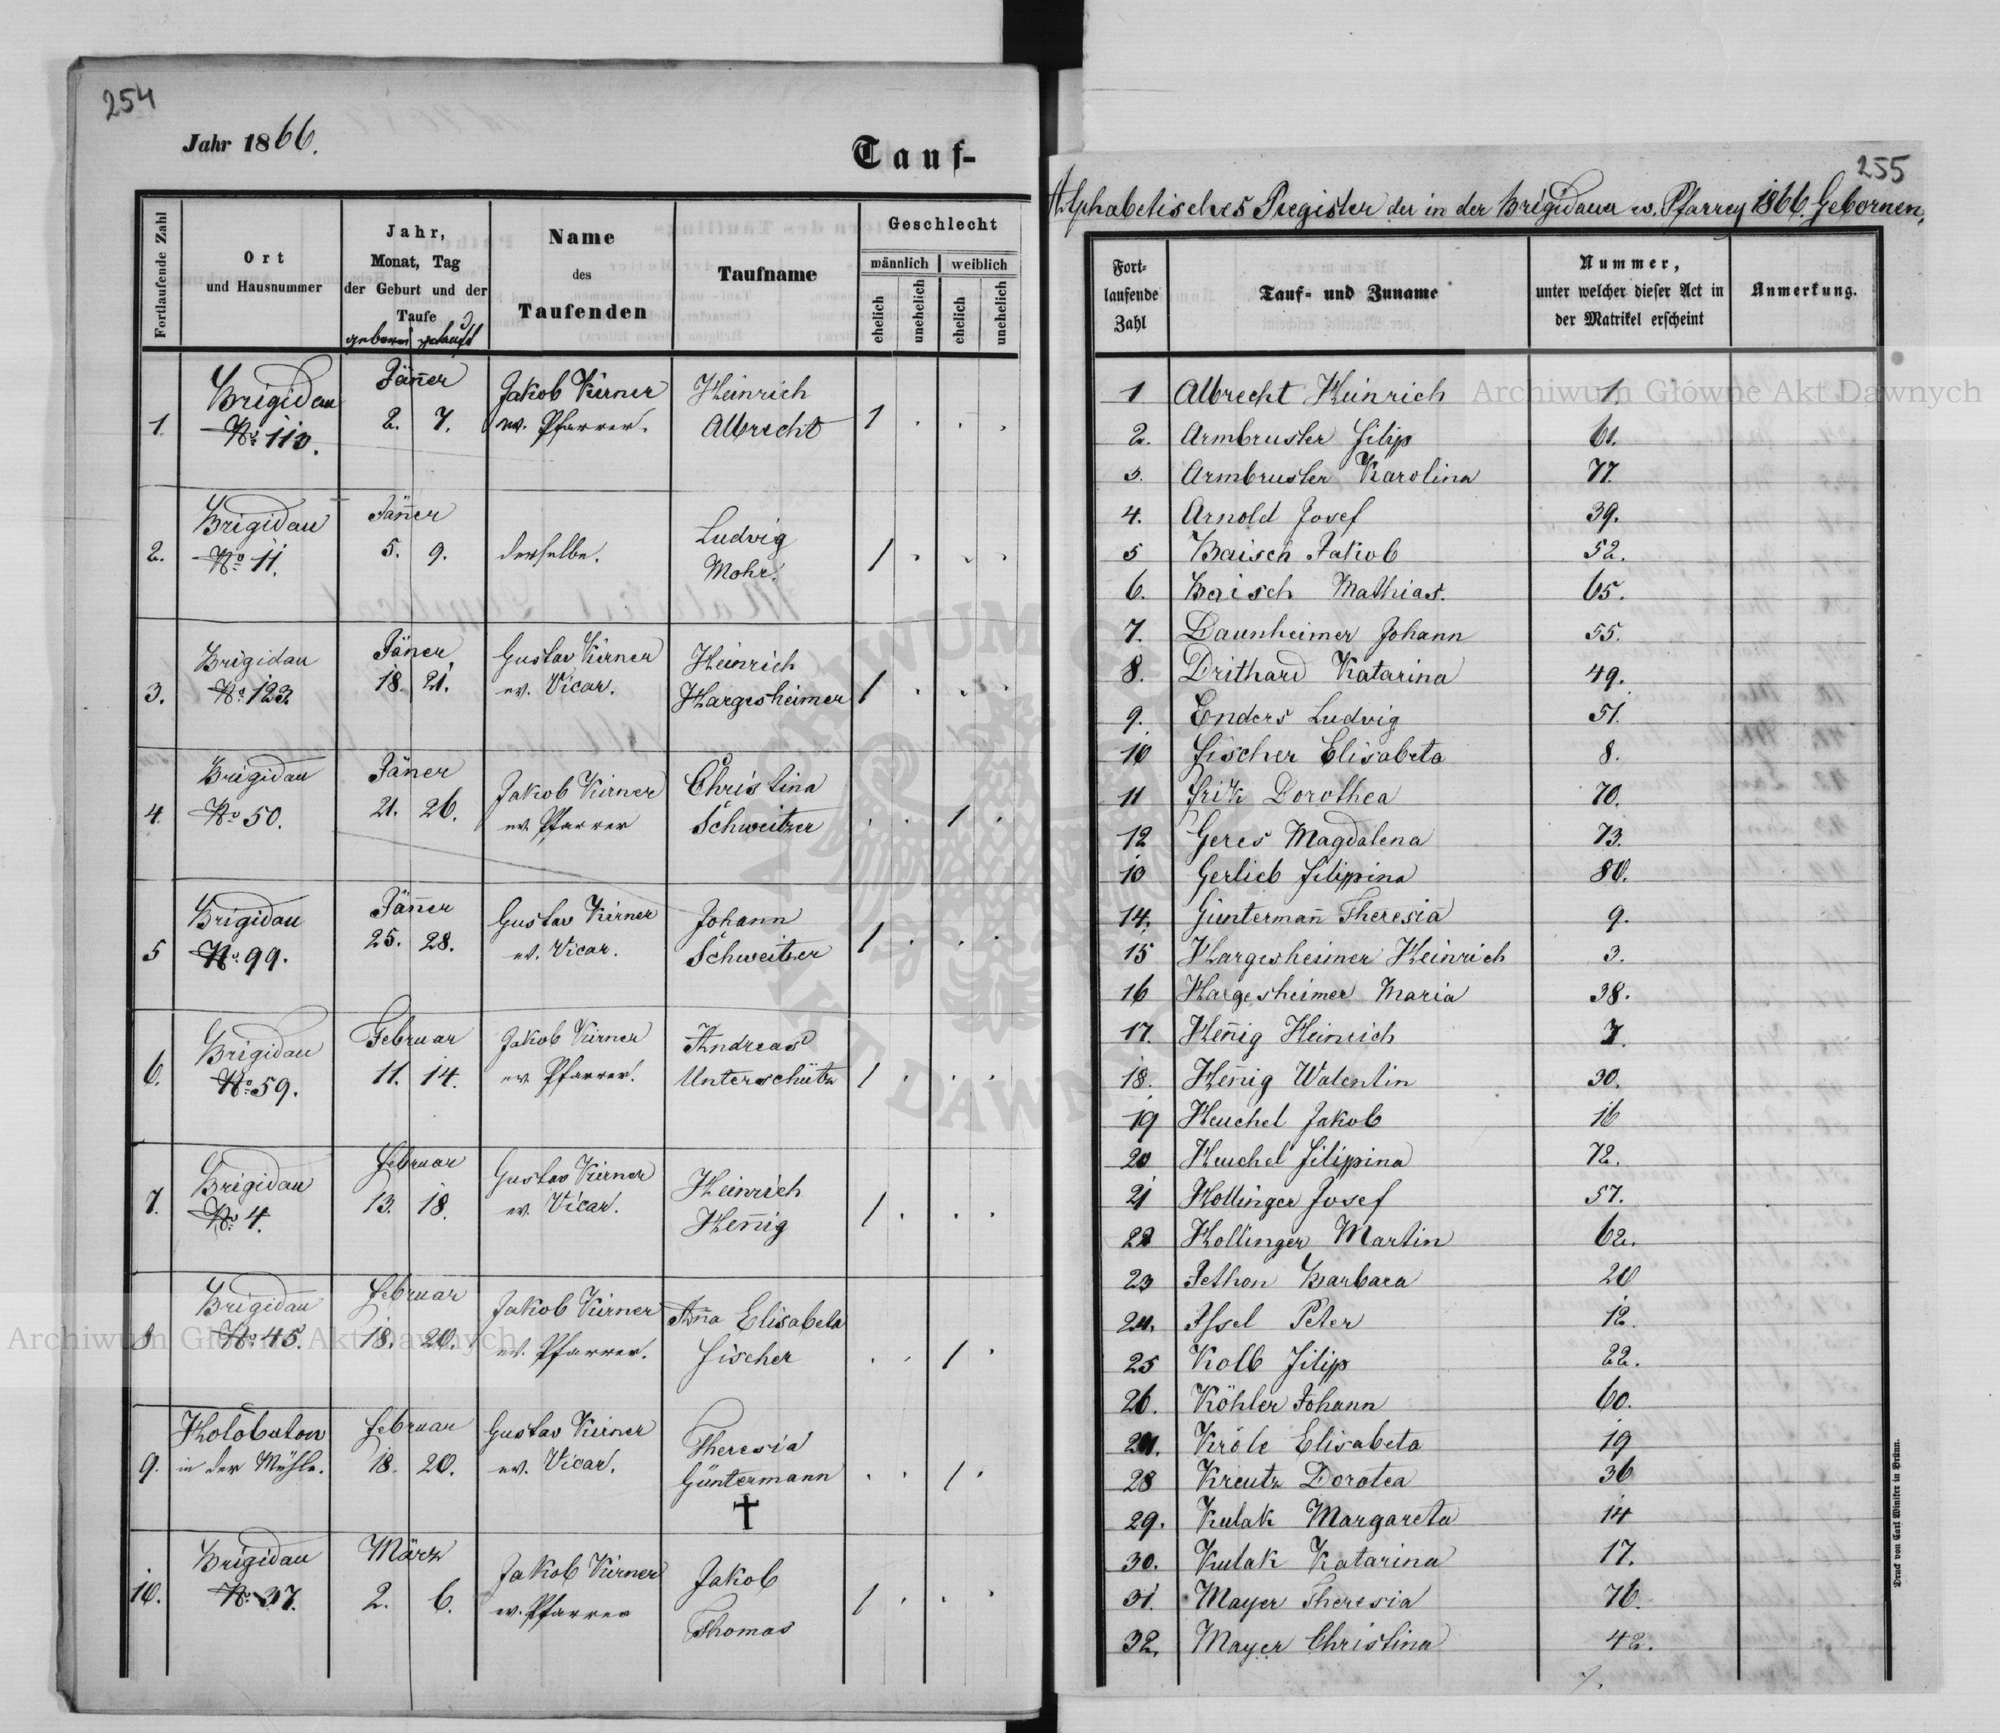 254
Jahr 1866.
Tauf-
Fortlaufende Zahl
Ort
und Hausnummer
Jahr,
Monat, Tag
der Geburt und der
Taufe
geboren getauft
Name
des
Taufenden
Taufname
Geschlecht
männlich weiblich
ehelich unehelich ehelich unehelich
1. Brigidau No. 113. Jäner 2. 7. Jakob Kirner ev. Pfarrer. Heinrich Albrecht 1 . . .
2. Brigidau No. 11. Jäner 5. 9. derselbe. Ludvig Mohr. 1 . . .
3. Brigidau No. 123. Jäner 18. 21. Gustav Kirner ev. Vicar. Heinrich Hargesheimer 1 . . .
4. Brigidau No. 50. Jäner 21. 26. Jakob Kirner ev. Pfarrer Christina Schweitzer . . 1 .
5 Brigidau No. 99. Jäner 25. 28. Gustav Kirner ev. Vicar. Johann Schweitzer 1 . . .
6. Brigidau No. 59. Februar 11. 14. Jakob Kirner ev. Pfarrer. Andreas Unterschütz 1 . . .
7. Brigidau No. 4. Februar 13. 18. Gustav Kirner ev. Vicar. Heinrich Hen̄ig 1 . . .
8 Brigidau No. 45. Februar 18. 20. Jakob Kirner ev. Pfarrer. An̄a Elisabeta Fischer . . 1 .
9. Holobutow in der Mühle. Februar 18. 20. Gustav Kirner ev. Vicar. Theresia Güntermann † . . 1 .
10. Brigidau No. 37. März 2. 6. Jakob Kirner ev. Pfarrer Jakob Thomas 1 . . .
255
Alphabetisches Register der in der Brigidauer ev. Pfarrey 1866. Gebornen.
Fort-
laufende
Zahl
Tauf- und Zuname
Nummer,
unter welcher dieser Act in
der Matrikel erscheint
Anmerkung.
1 Albrecht Heinrich 1.
2. Armbruster Filip 61.
3. Armbruster Karolina 77.
4. Arnold Josef 39.
5 Baisch Jakob 52.
6. Baisch Mathias. 65.
7. Daunheimer Johann 55.
8. Drithard Katarina 49.
9. Enders Ludvig 51.
10 Fischer Elisabeta 8.
11 Fritz Dorothea 70.
12 Geres Magdalena 73.
13 Gerlieb Filippina 80.
14. Günterman̄ Theresia 9.
15 Hargesheimer Heinrich 3.
16 Hargesheimer Maria 38.
17. Hen̄ig Heinrich 7.
18. Hen̄ig Walentin 30.
19 Heuchel Jakob 16
20 Heuchel Filippina 72.
21 Hollinger Josef 57.
22 Hollinger Martin 62.
23 Jethon Barbara 20
24. Issel Peter 12.
25 Kolb Filip 22.
26. Köhler Johann 60.
27. Króle Elisabeta 19
28 Kreutz Dorotea 36
29. Kulak Margareta 14
30. Kulak Katarina 17.
31. Mayer Theresia 76.
32. Mayer Christina 42.
Druck von Carl Winiker in Brünn.
Archiwum Główne Akt Dawnych
Archiwum Główne Akt Dawnych
ARCHIWUM GŁÓWNE AKT DAWNYCH